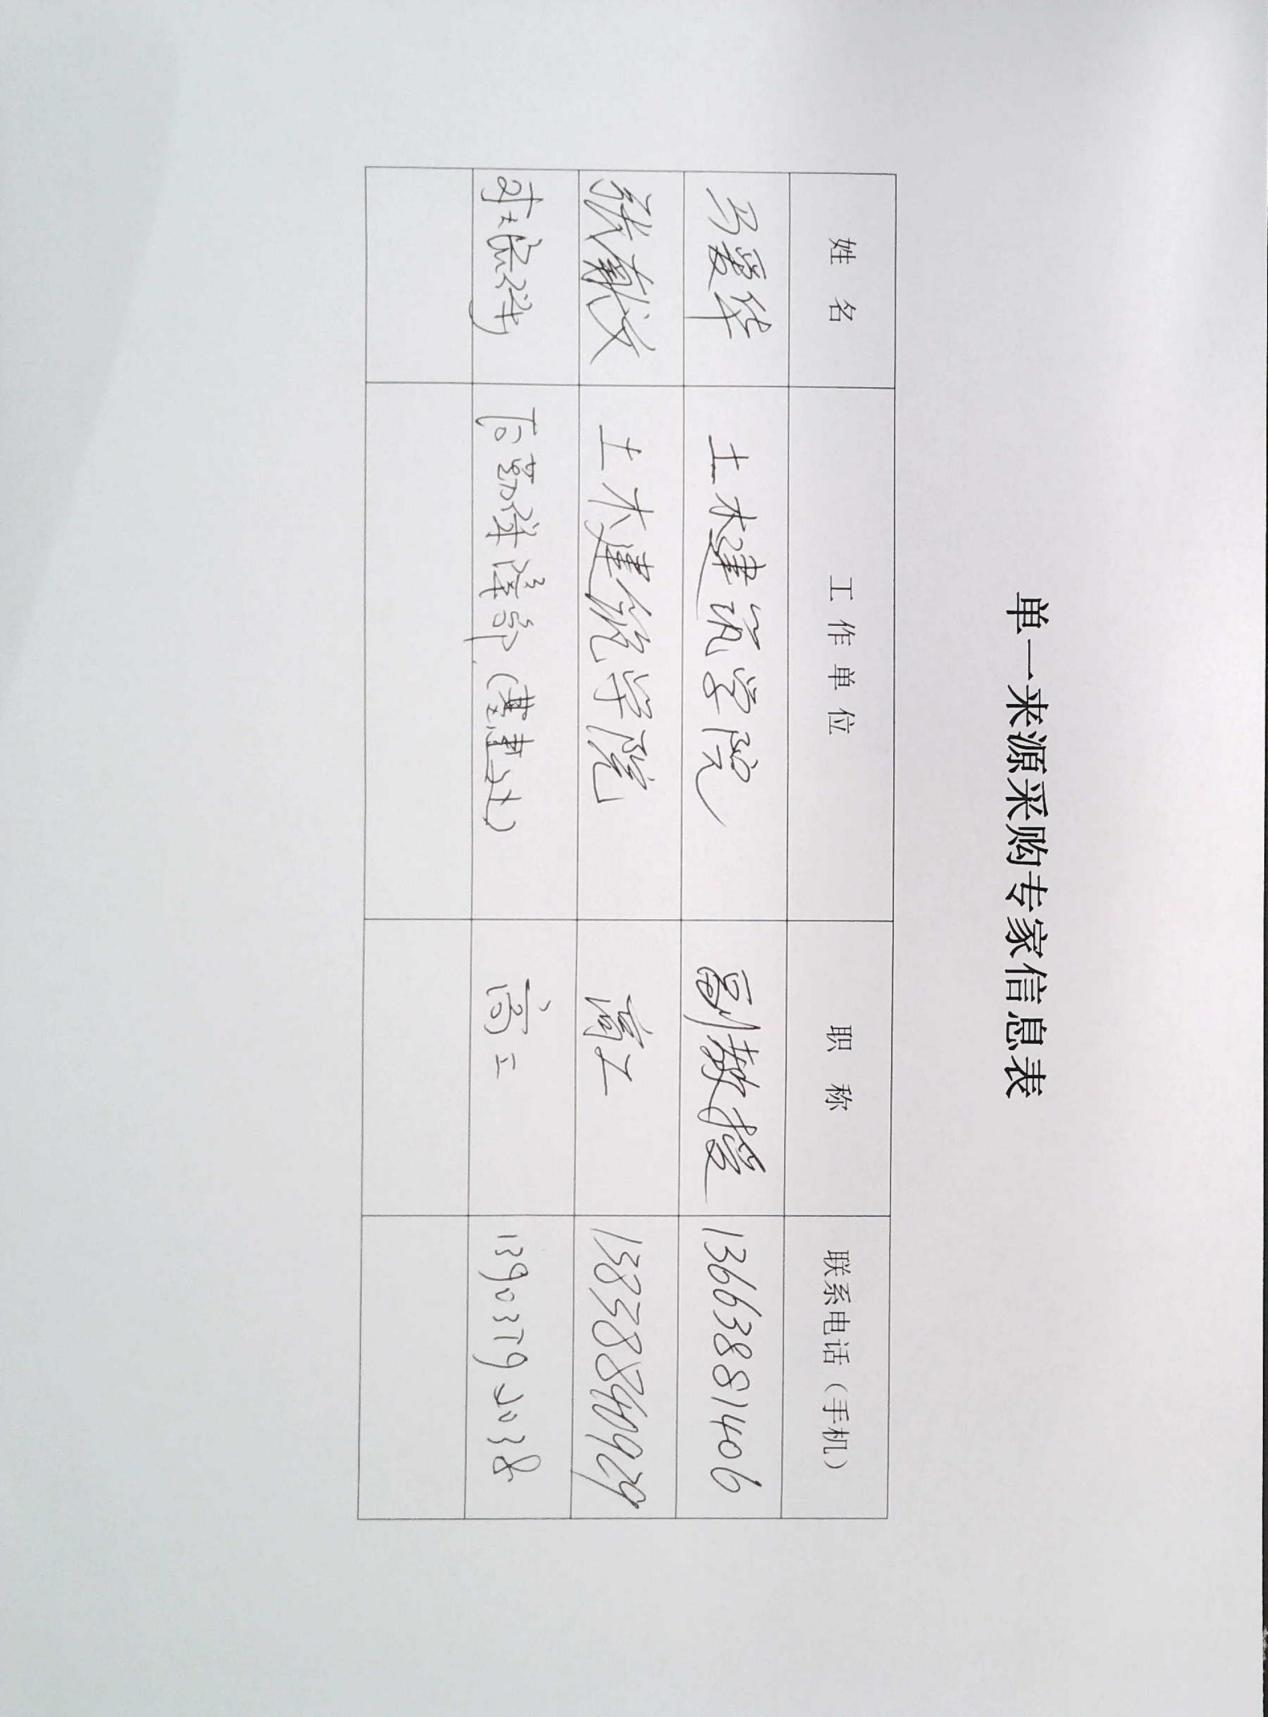 单一来源采购专家信息表
姓名 工作单位 职称 联系电话（手机）
马爱华 土木建筑学院 副教授 13663881406
张献 土木建筑学院 高工 13838840929
后勤 部 高工 13903792038